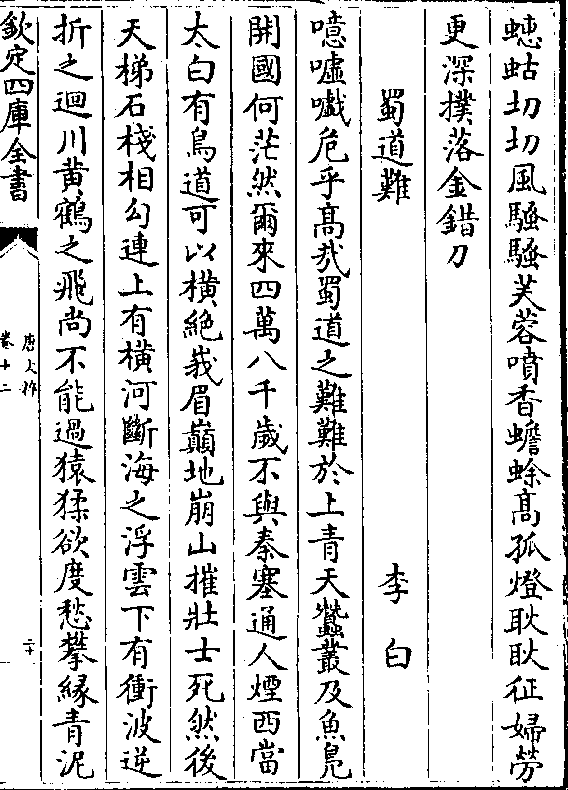 蟋蛄切切風騷騷芙蓉噴香蟾蜍髙孤燈耿耿征婦勞
更深撲落金錯刀
蜀道難　李白
噫嘘嚱危乎髙哉蜀道之難難於上青天蠶叢及魚鳬
開國何茫然爾來四萬八千歲不與秦塞通人煙西當
太白有鳥道可以橫絶峩眉巔地崩山摧壯士死然後
天梯石棧相勾連上有橫河斷海之浮雲下有衝波逆
折之迴川黄鶴之飛尚不能過猿猱欲度愁攀緣青泥
欽定四庫全書
唐文粹
卷十二
二十